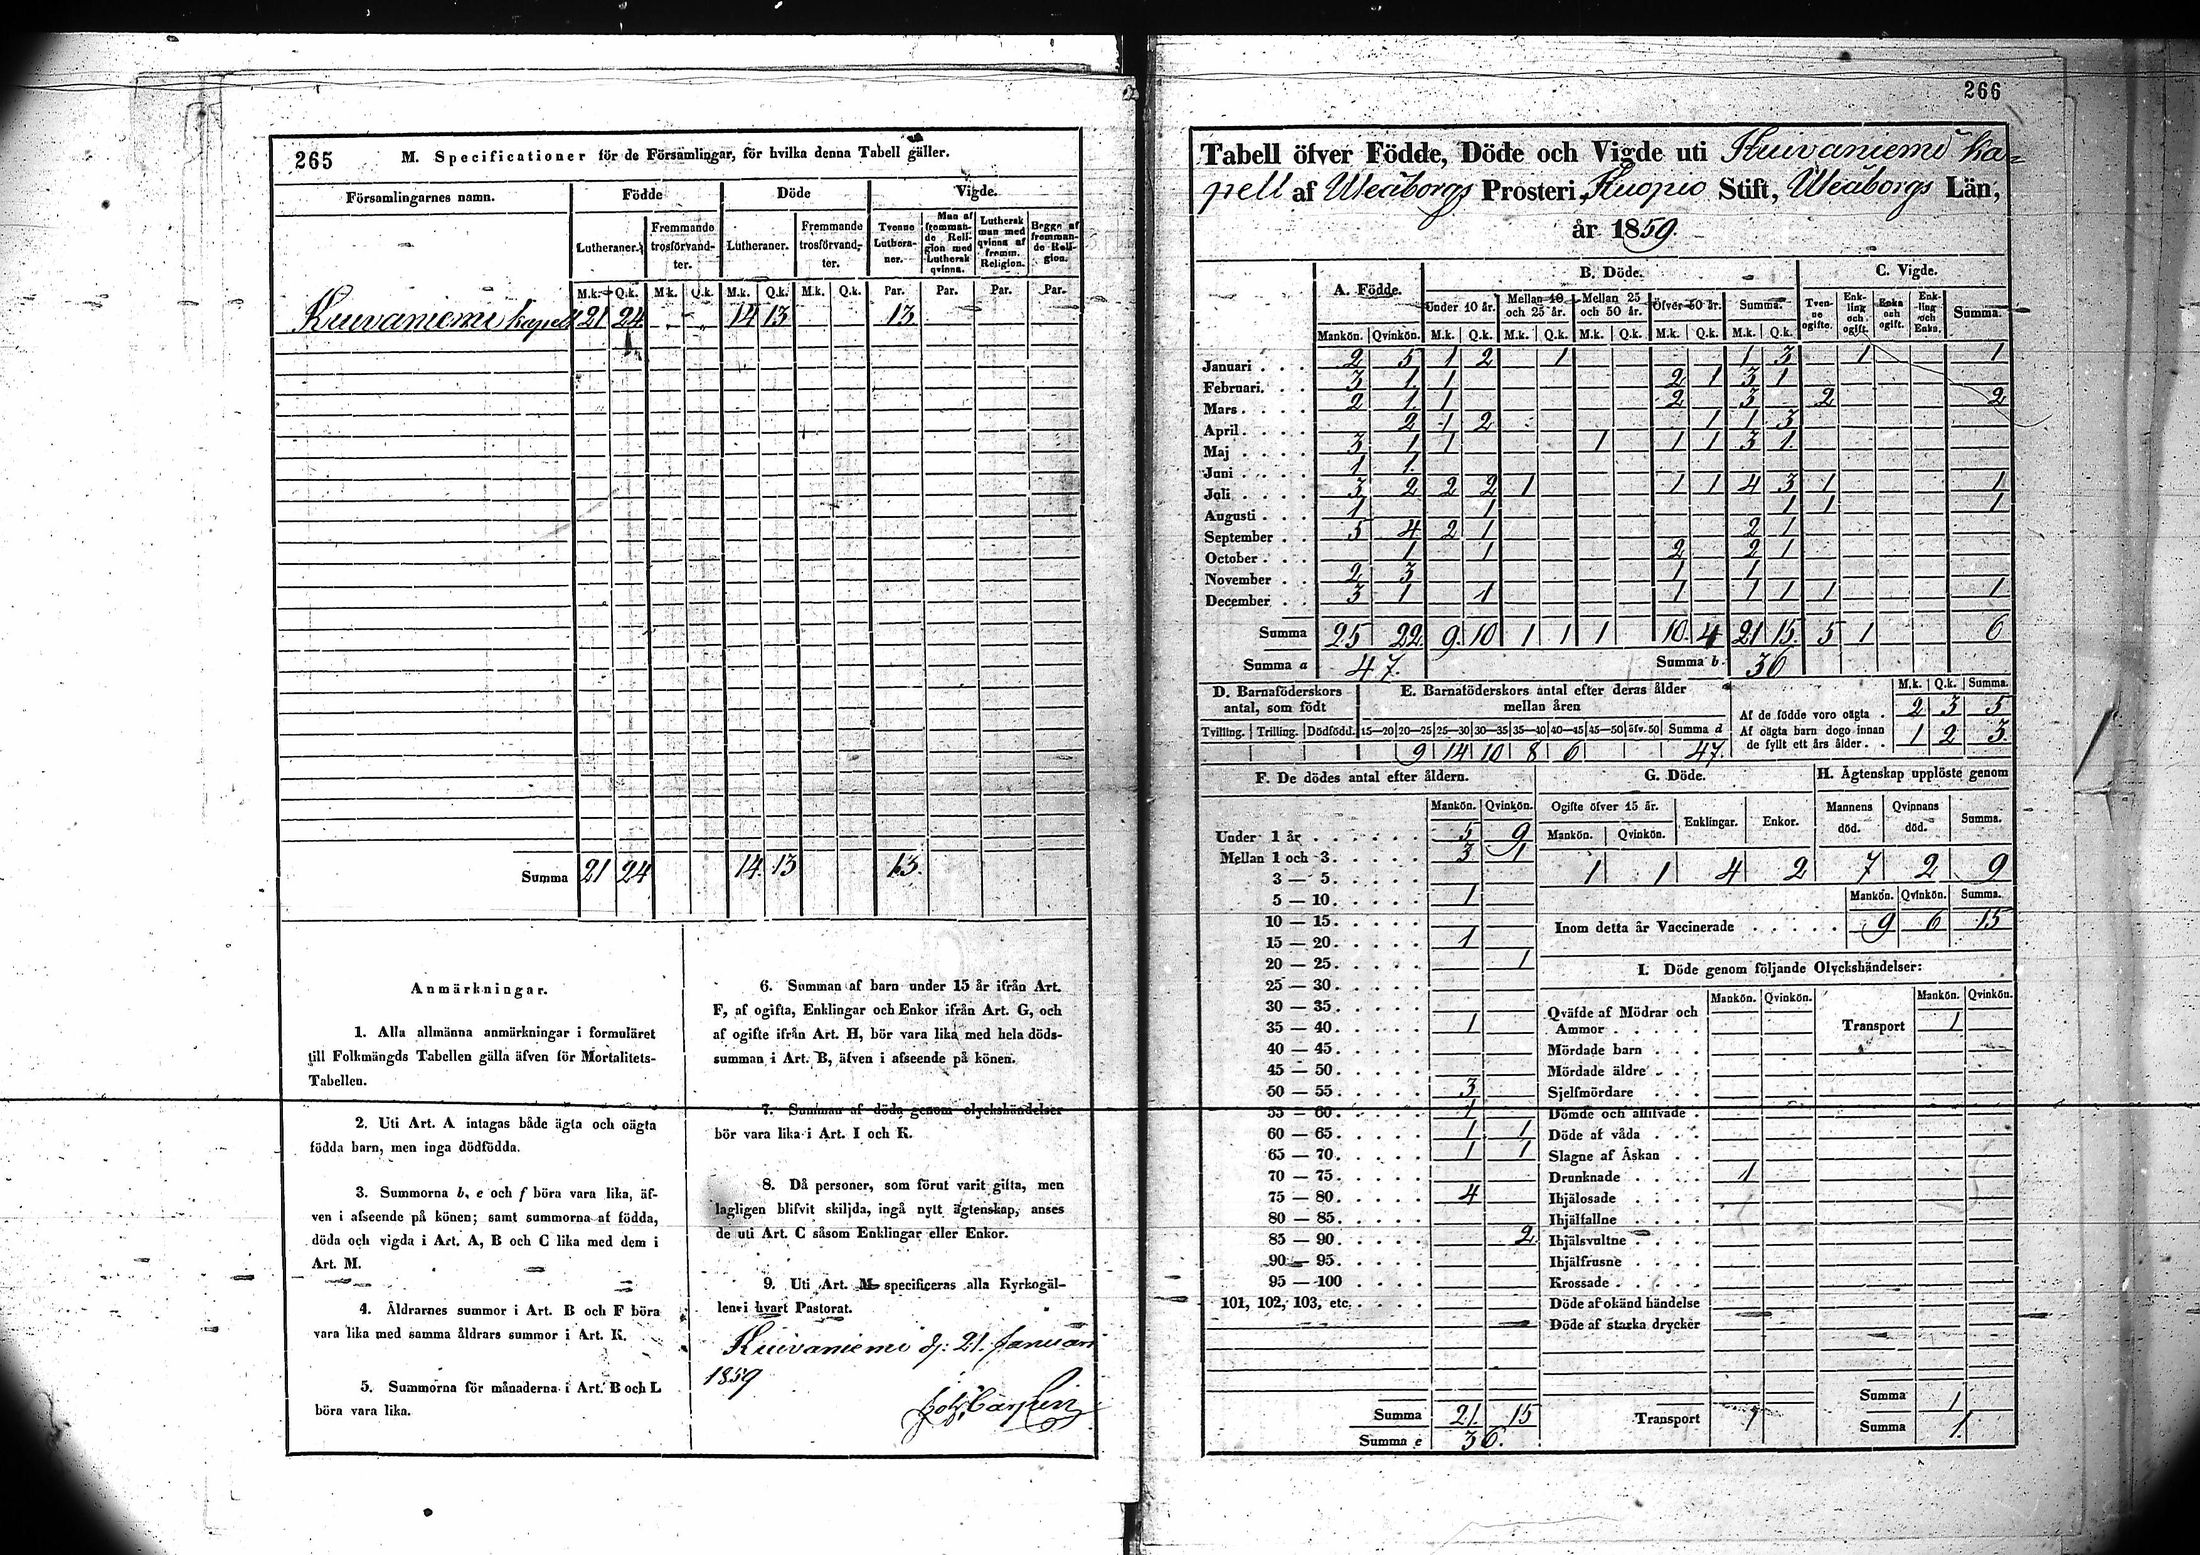 265
M. Specificationer för de Församlingar, för hvilka denna Tabell gäller.
Församlingarnes namn. Födde Döde Vigde.
Lutheraner. Fremmande trosförvandter. Lutheraner. Fremmande trosförvandter. Tvenne Lutheraner. Man af fremmande Religion med Luthersk qvinna. Luthersk man med qvinna af fremm. Religion. Begge af fremmande Religion.
M.k. Q.k. M.k. Q.k. M.k. Q.k. M.k. Q.k. Par. Par. Par. Par.
Kuivaniemi kapell 21 24 14 13 13
Summa 21 24 14 13 13.
Anmärkningar.
1. Alla allmänna anmärkningar i formuläret
till Folkmängds Tabellen gälla äfven för Mortalitets-
Tabellen.
2. Uti Art. A intagas både ägta och oägta
födda barn, men inga dödfödda.
3. Summorna b, e och f böra vara lika, äf-
ven i afseende på könen; samt summorna af födda,
döda och vigda i Art. A, B och C lika med dem i
Art. M.
4. Åldrarnes summor i Art. B och F böra
vara lika med samma åldrars summor i Art. K.
5. Summorna för månaderna i Art. B och L
böra vara lika.
6. Summan af barn under 15 år ifrån Art.
F, af ogifta, Enklingar och Enkor ifrån Art. G, och
af ogifte ifrån Art. H, bör vara lika med hela döds-
summan i Art. B, äfven i afseende på könen.
7. Summan af döda genom olyckshändelser
bör vara lika i Art. I och K.
8. Då personer, som förut varit gifta, men
lagligen blifvit skiljda, ingå nytt ägtenskap, anses
de uti Art. C såsom Enklingar eller Enkor.
9. Uti Art. M specificeras alla Kyrkogäl-
len i hvart Pastorat.
Kuivaniemi d: 21. Januari
1859
266
Tabell öfver Födde, Döde och Vigde uti Kuivaniemi ka-
pell af Uleåborgs Prosteri, Kuopio Stift, Uleåborgs Län,
år 1859.
A. Födde. B. Döde. C. Vigde.
Under 10 år. Mellan 10 och 25 år. Mellan 25 och 50 år. Öfver 50 år. Summa. Tvenne ogifte. Enkling och ogift. Enka och ogift. Enkling och Enka. Summa.
Mankön. Qvinkön. M.k. Q.k. M.k. Q.k. M.k. Q.k. M.k. Q.k. M.k. Q.k.
Januari 2 5 1 2 1 1 3 1 1
Februari 3 1 1 2 1 3 1
Mars 2 1 1 2 3 2 2
April 2 1 2 1 1 3
Maj 3 1 1 1 1 1 3 1
Juni 1 1
Juli 3 2 2 2 1 1 1 4 3 1 1
Augusti 1 1 1 1 1
September 5 4 2 1 2 1
October 1 1 2 2 1
November 2 3 1 1
December 3 1 1 1 1 1 1 1
Summa 25 22 9 10 1 1 1 10 4 21 15 5 1 6
Summa a 47. Summa b. 36
D. Barnaföderskors antal, som födt
Tvilling. Trilling. Dödfödd.
E. Barnaföderskors antal efter deras ålder mellan åren
15—20 20—25 25—30 30—35 35—40 40—45 45—50 öfv. 50 Summa d
9 14 10 8 6 47.
M.k. Q.k. Summa.
Af de födde voro oägta . 2 3 5
Af oägta barn dogo innan de fyllt ett års ålder . . 1 2 3.
F. De dödes antal efter åldern.
Mankön. Qvinkön.
Under 1 år 5 9
Mellan 1 och 3 3 1
3 — 5
5 — 10 1
10 — 15
15 — 20 1
20 — 25 1
25 — 30
30 — 35
35 — 40 1
40 — 45
45 — 50
50 — 55 3
55 — 60 1
60 — 65 1 1
65 — 70 1 1
70 — 75
75 — 80 4
80 — 85
85 — 90 2
90 — 95
95 — 100
101, 102, 103, etc.
Summa 21. 15
Summa e 36.
G. Döde.
Ogifte öfver 15 år. Enklingar. Enkor.
Mankön. Qvinkön.
1 1 4 2
H. Ägtenskap upplöste genom
Mannens död. Qvinnans död. Summa.
7 2 9
Mankön. Qvinkön. Summa.
Inom detta år Vaccinerade 9 6 15
I. Döde genom följande Olyckshändelser:
Mankön. Qvinkön. Mankön. Qvinkön.
Qväfde af Mödrar och Ammor Transport 1
Mördade barn
Mördade äldre
Sjelfmördare
Dömde och aflifvade
Döde af våda
Slagne af Åskan
Drunknade 1
Ihjälosade
Ihjälfallne
Ihjälsvultne
Ihjälfrusne
Krossade
Döde af okänd händelse
Döde af starka drycker
Summa 1
Transport 1 Summa 1.